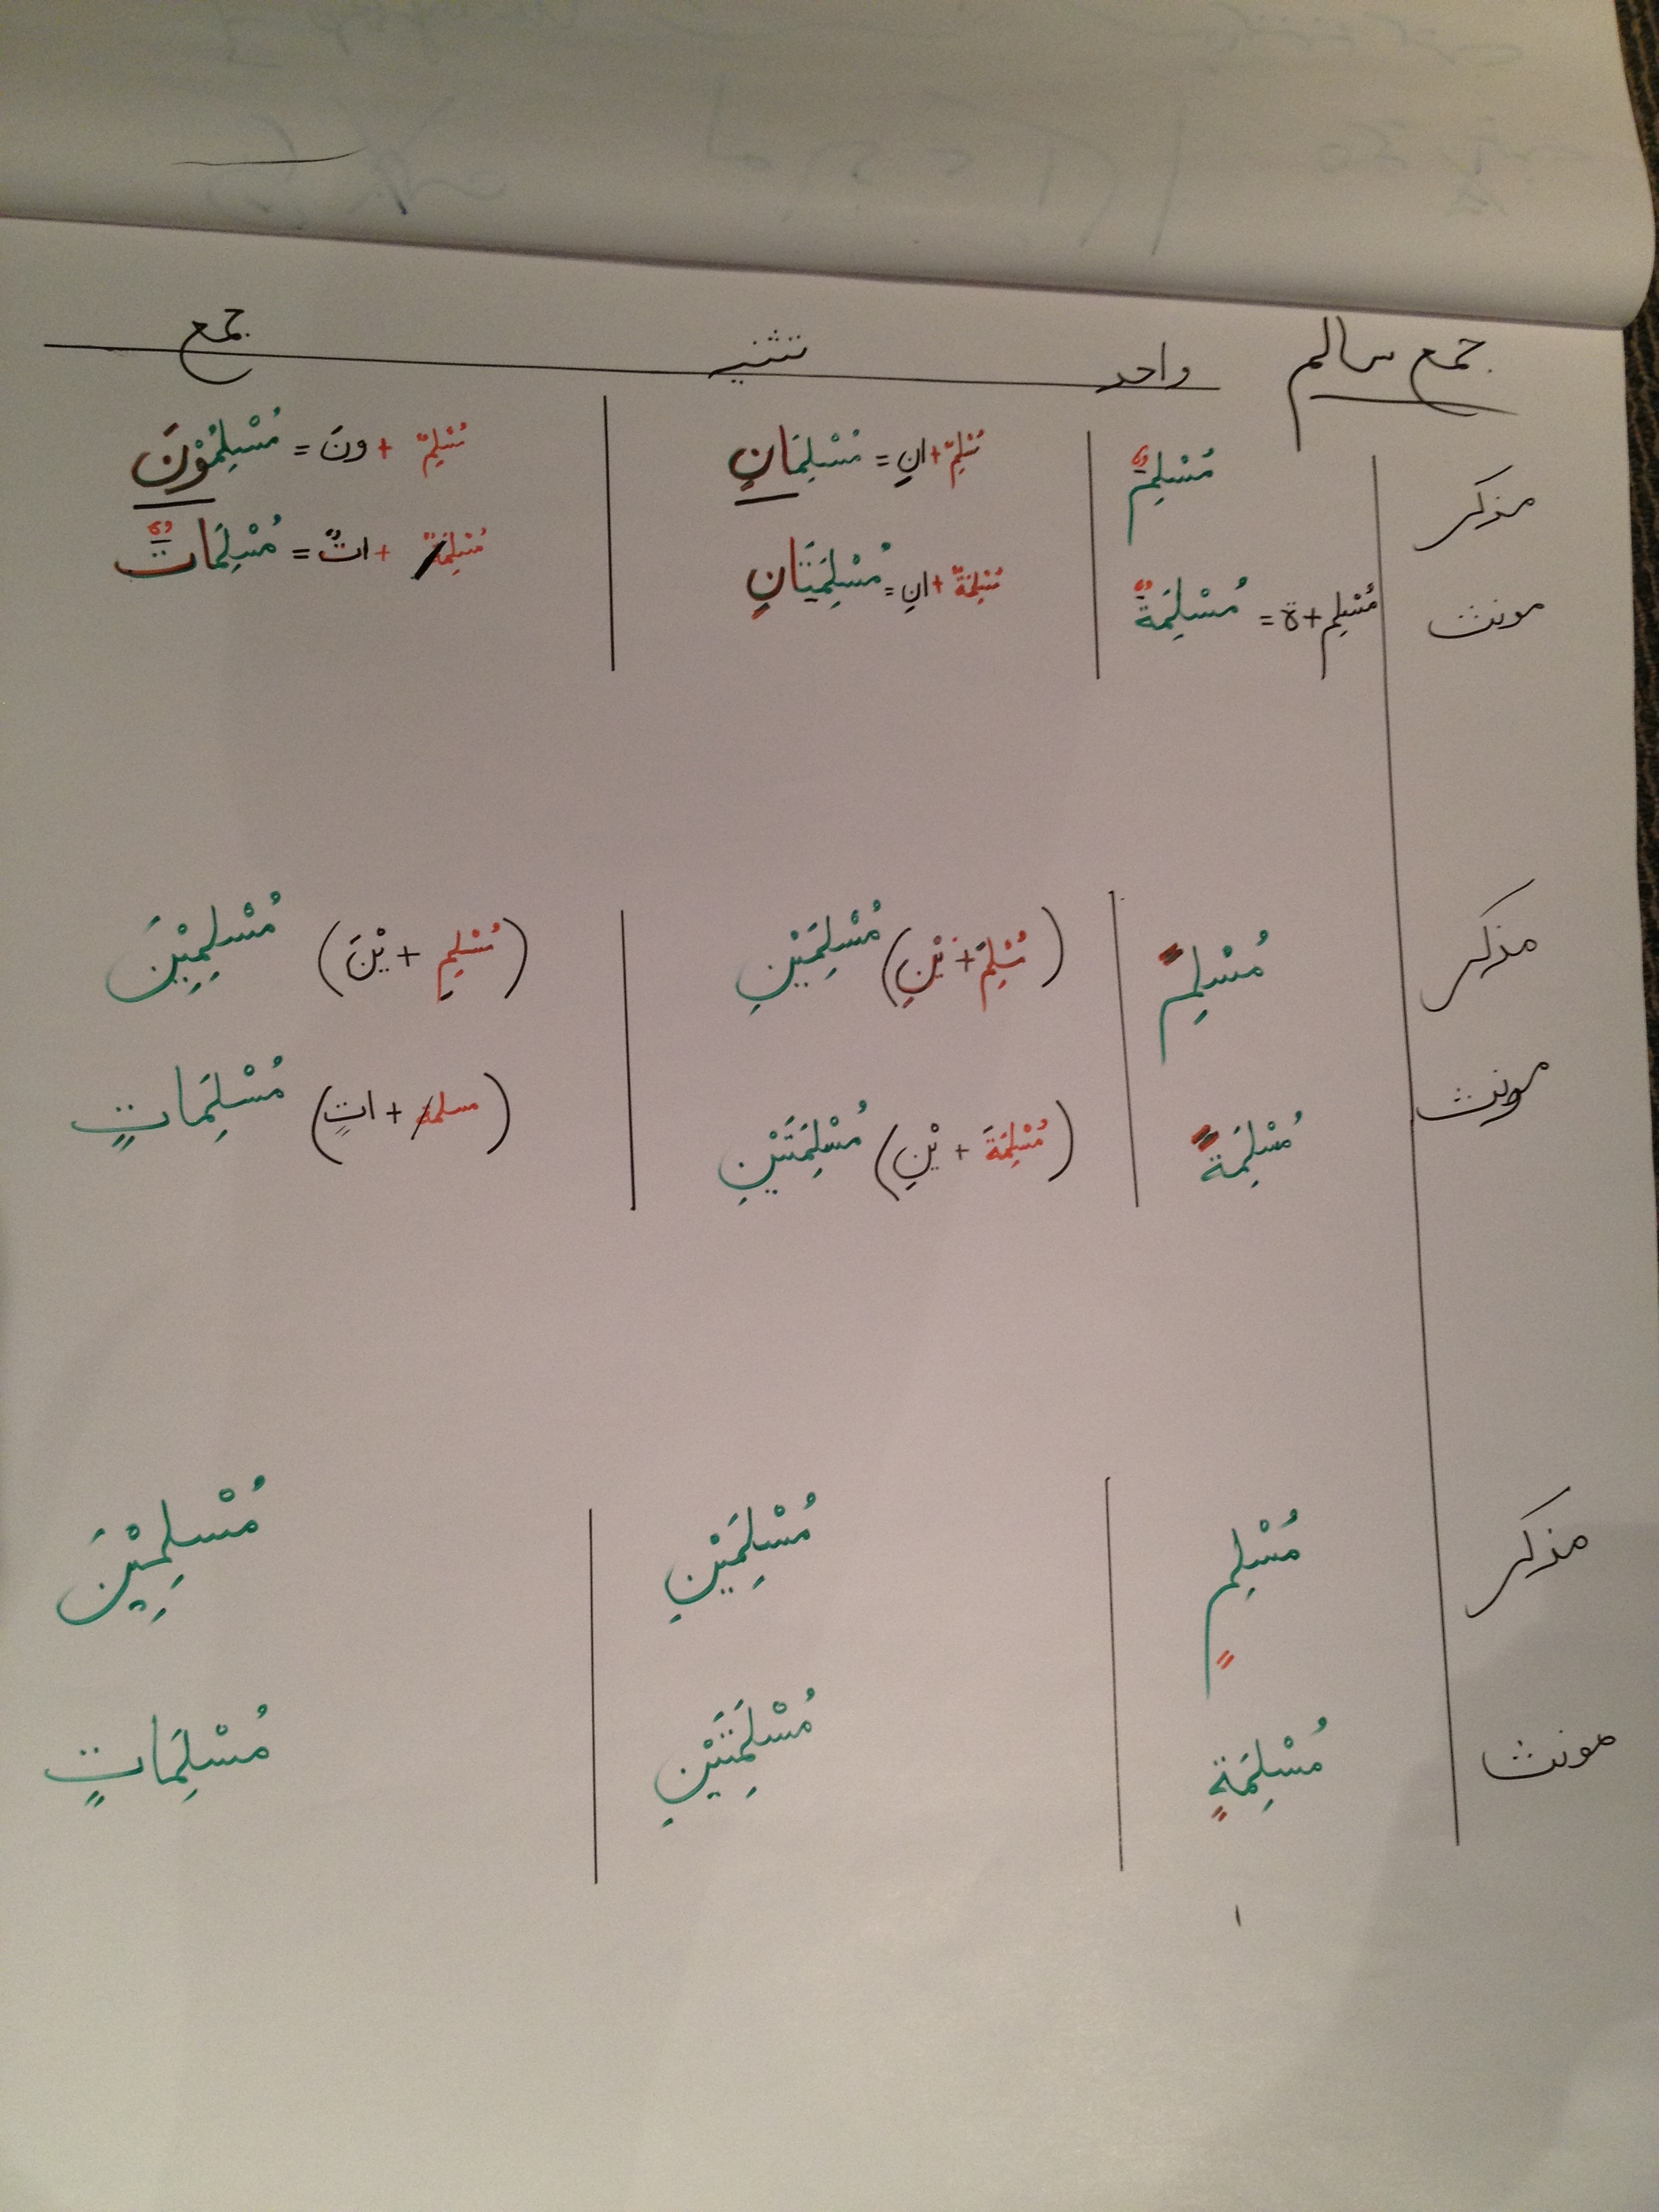 جمع سالم واحد تثنیہ جمع
مذکر مُسْلِمٌ مُسْلِمٌ+انِ=مُسْلِمَانِ مُسْلِمٌ + ونَ = مُسْلِمُوْنَ
مونث مُسْلِم+ة = مُسْلِمَةٌ مُسْلِمَةٌ+انِ=مُسْلِمَتَانِ مُسْلِمَةٌ + اتٌ = مُسْلِمَاتٌ
مذکر مُسْلِمً (مُسْلِمَ + يْنِ) مُسْلِمَيْنِ (مُسْلِمِ + يْنَ) مُسْلِمِيْنَ
مونث مُسْلِمَةً (مُسْلِمَةَ + يْنِ) مُسْلِمَتَيْنِ (مسلمة + اتٍ) مُسْلِمَاتٍ
مذکر مُسْلِمٍ مُسْلِمَيْنِ مُسْلِمِيْنَ
مونث مُسْلِمَةٍ مُسْلِمَتَيْنِ مُسْلِمَاتٍ